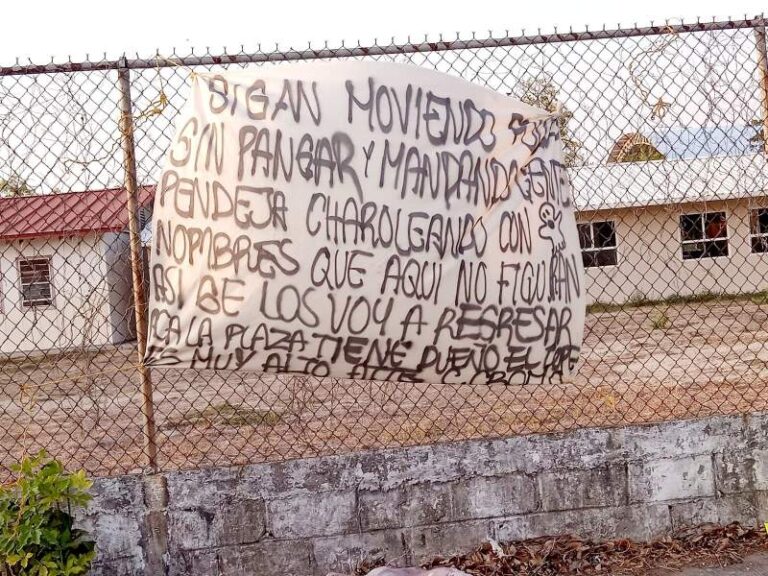 SIGAN MOVIENDO
SIN PANGAR Y MANDANDO GENTE
PENDEJA CHAROLEANDO CON
NOMBRES QUE AQUI NO FIGURAN
ASI SE LOS VOY A REGRESAR
LA PLAZA TIENE DUEÑO EL
ES MUY ALTO ATTE